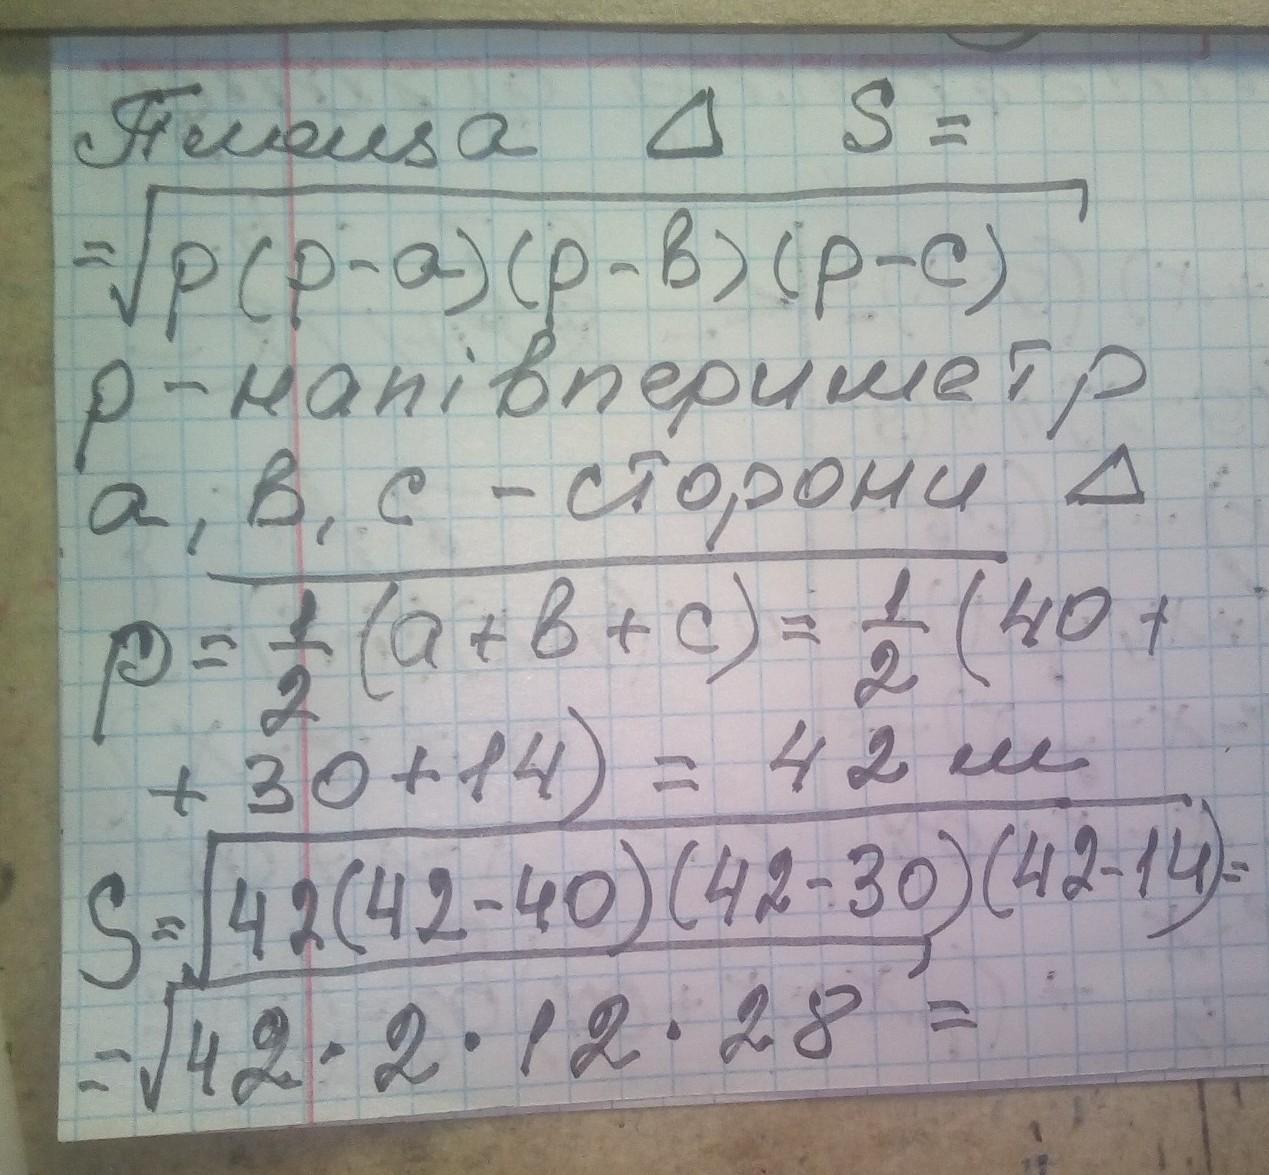 Площа Δ S =
= √p(p-a)(p-в)(p-c)
p - напівпериметр
a, в, c - сторони Δ
p = 1/2 (a + в + c) = 1/2 (40 +
+ 30 + 14) = 42 м
S = √42(42-40)(42-30)(42-14) =
= √42 · 2 · 12 · 28 =